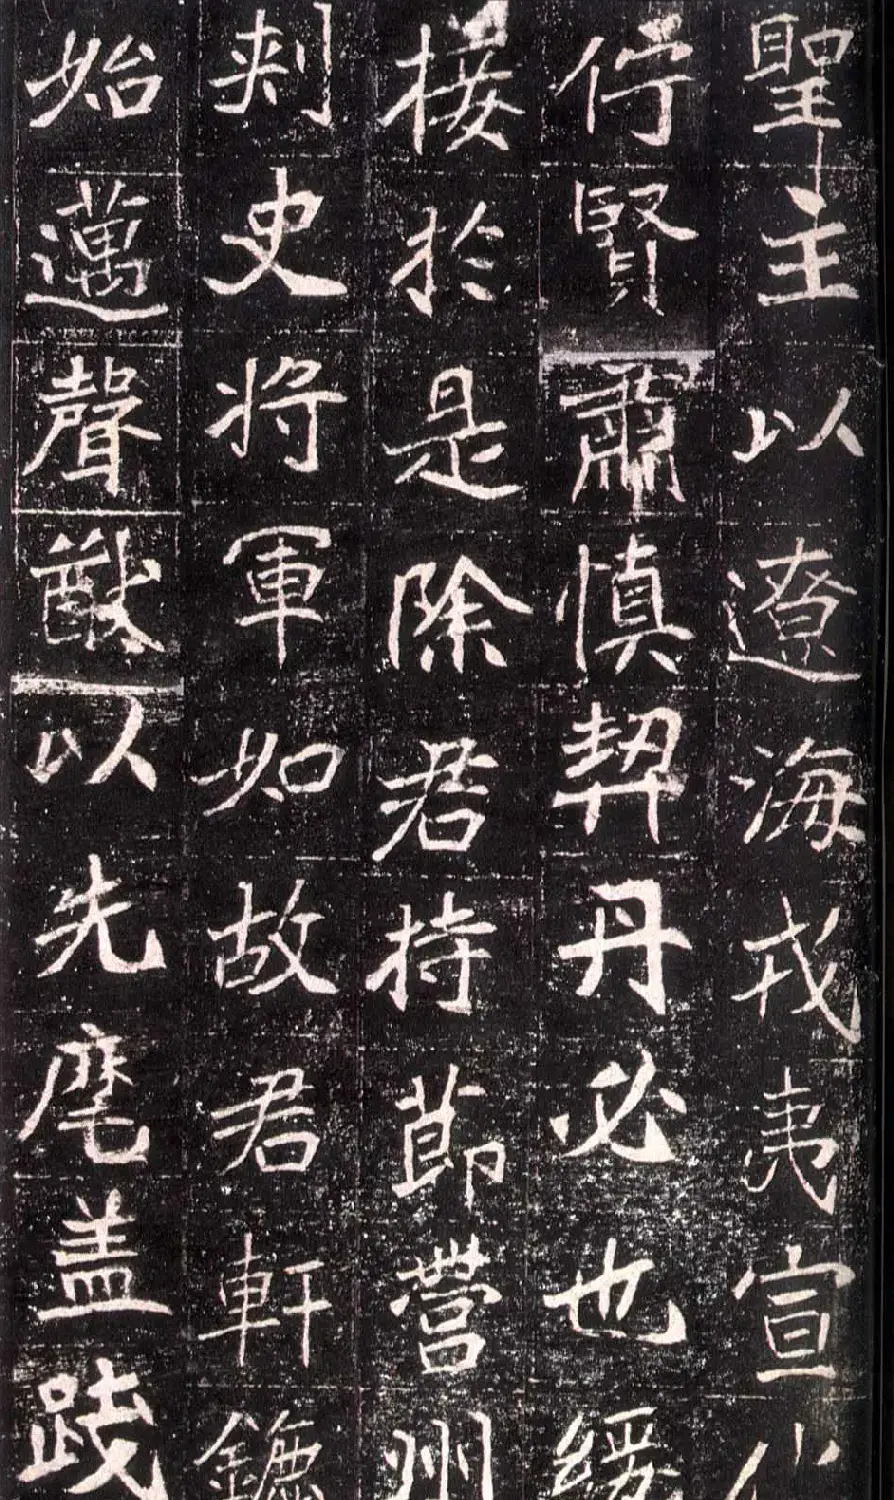 聖主以遼海戎夷宣
佇賢肅慎契丹必也緩
接於是除君持節營州
刺史將軍如故君軒鑣
始邁聲猷以先麾盖踐